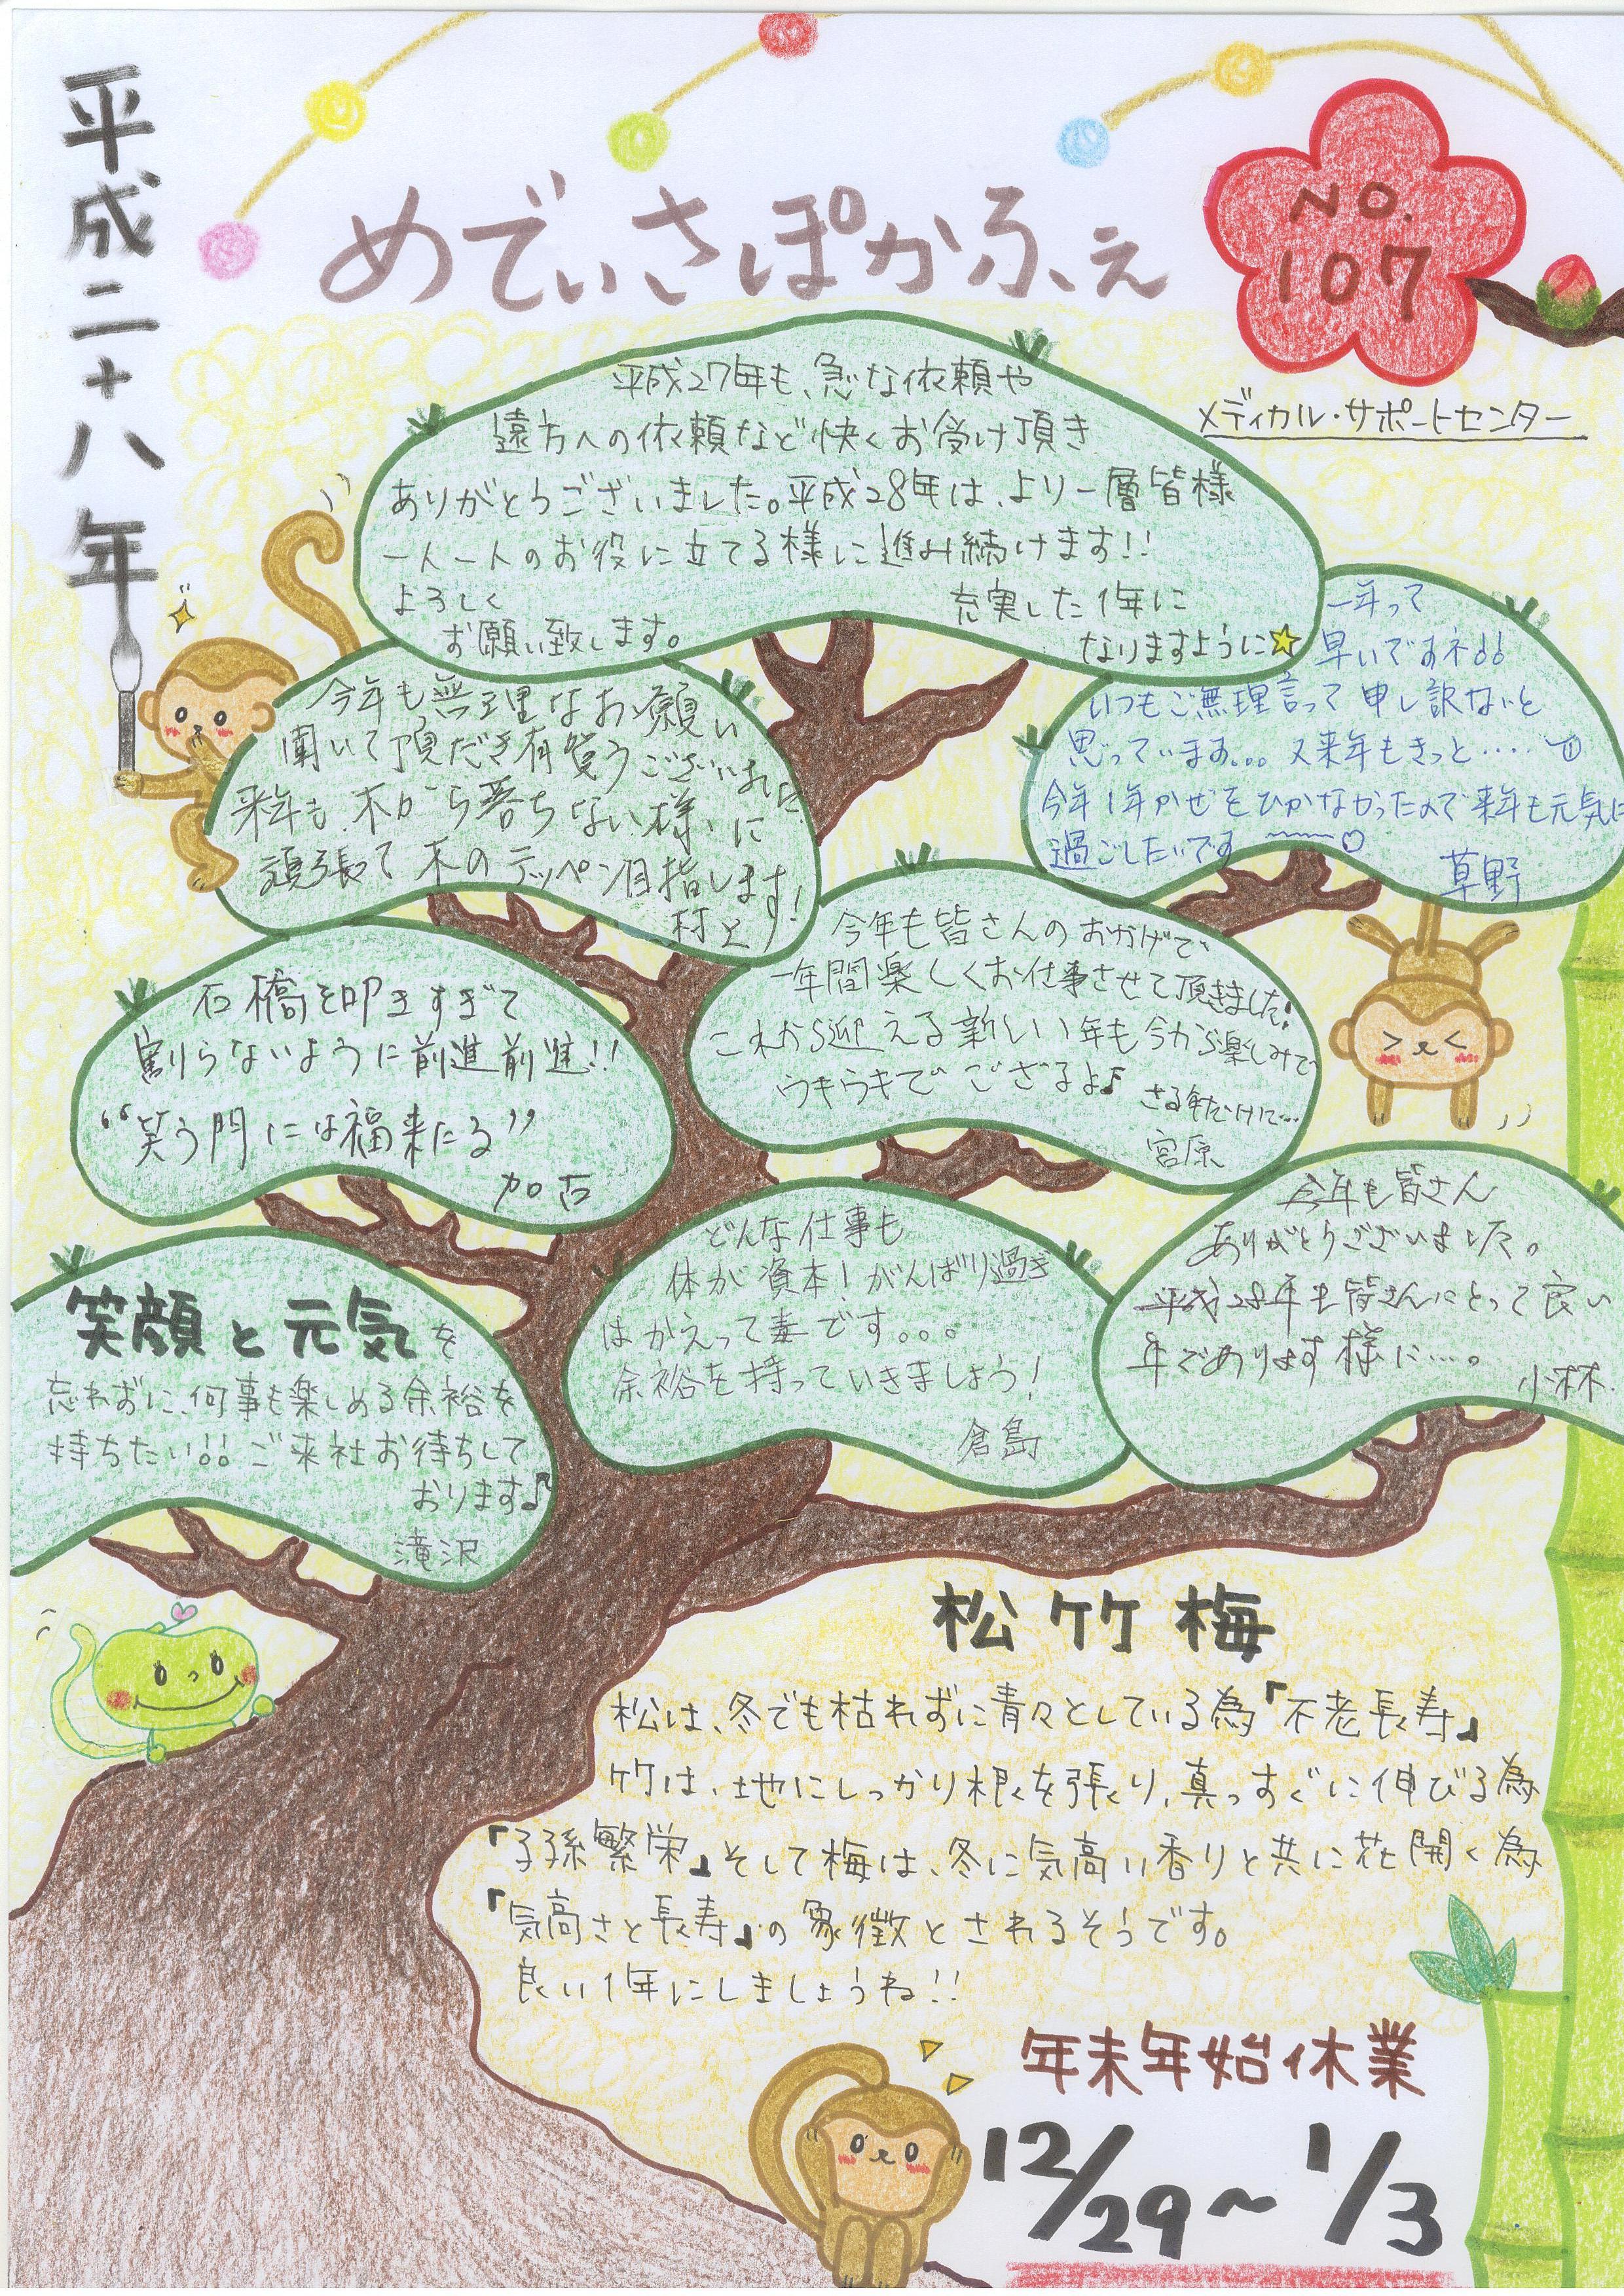 平成二十八年
めでぃさぽかふぇ
NO.
107
メディカル・サポートセンター
平成27年も、急な依頼や
遠方への依頼など快くお受け頂き
ありがとうございました。平成28年は、より一層皆様
一人一人のお役に立てる様に進み続けます!!
よろしく
お願い致します。
充実した1年に
なりますように☆
今年も無理なお願い
聞いて頂だき有賀うございました
来年も、木から落ちない様、に
頑張って木のテッペン目指します!
村上
一年って
早いですネ!!
いつもご無理言って申し訳ないと
思っています。。。又来年もきっと・・・・
今年1年かぜをひかなかったので来年も元気に
過ごしたいです〜〜♡
草野
今年も皆さんのおかげで、
一年間楽しくお仕事させて頂きました!
これから迎える新しい1年も今から楽しみで、
ウキウキで ござるよ♪
さる年だけに…
宮原
石橋を叩きすぎて
割らないように前進前進!!
“笑う門には福来たる”
加古
笑顔と元気を
忘れずに、何事も楽しめる余裕を
持ちたい!! ご来社お待ちして
おります♪
滝沢
どんな仕事も
体が資本!がんばり過ぎ
はかえって毒です。。。
余裕を持っていきましょう!
倉島
今年も皆さん
ありがとうございました。
平成28年も皆さんにとって良い
年であります様に…。
小林
松竹梅
松は、冬でも枯れずに青々としている為「不老長寿」
竹は、地にしっかり根を張り、真っすぐに伸びる為
「子孫繁栄」そして梅は、冬に気高い香りと共に花開く為
「気高さと長寿」の象徴とされるそうです。
良い1年にしましょうね!!
年末年始休業
12/29〜1/3